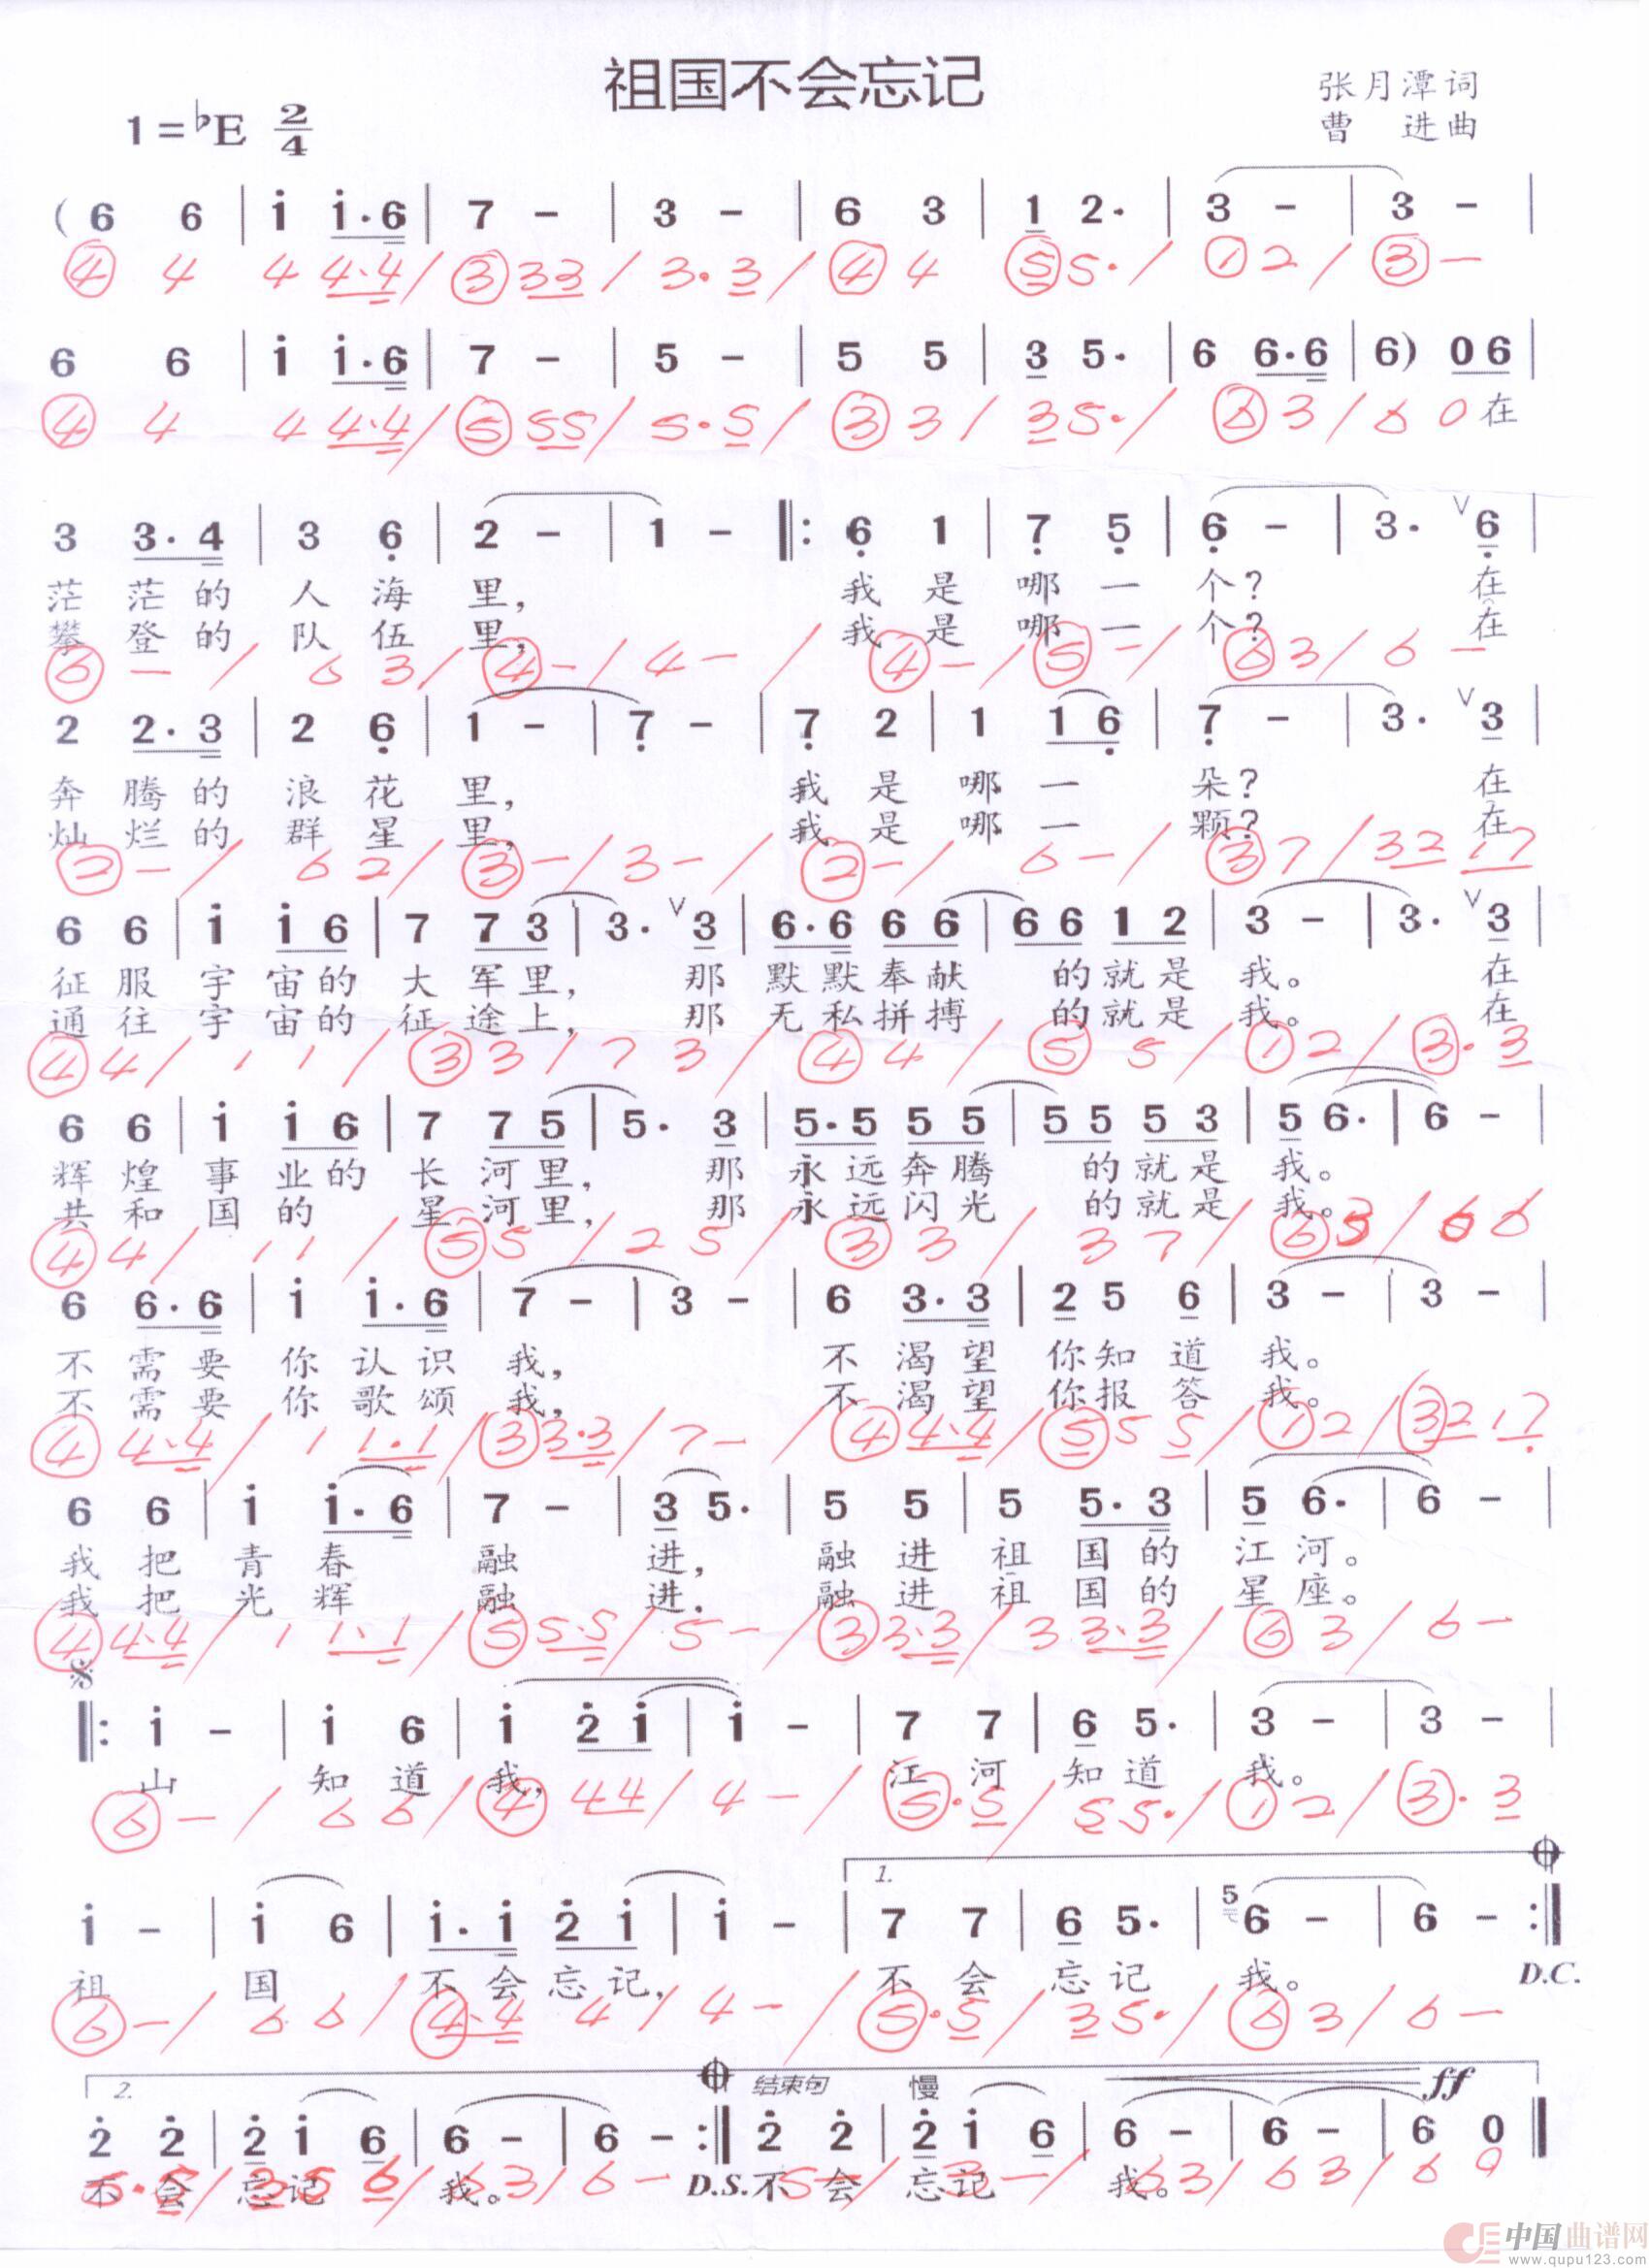 祖国不会忘记
张月潭词
1=♭E 2/4
曹 进曲
( 6 6 | i i·6 | 7 - | 3 - | 6 3 | 1 2· | 3 - | 3 - |
④ 4 4 4·4 / ③ 33 / 3·3 / ④ 4 ⑤ 5· / ① 2 / ③ -
6 6 | i i·6 | 7 - | 5 - | 5 5 | 3 5· | 6 6·6 | 6) 0 6 |
在
④ 4 4 4·4 / ⑤ 55 / 5·5 / ③ 3 / 3 5· / ⑥ 3 / 6 0
3 3·4 | 3 6 | 2 - | 1 - ‖: 6 1 | 7 5 | 6 - | 3· ∨ 6 |
茫 茫 的 人 海 里, 我 是 哪 一 个? 在
攀 登 的 队 伍 里, 我 是 哪 一 个? 在
⑥ - / 6 3 / ④ - / 4 - / ④ - / ⑤ - / ⑥ 3 / 6 -
2 2·3 | 2 6 | 1 - | 7 - | 7 2 | 1 1 6 | 7 - | 3· ∨ 3 |
奔 腾 的 浪 花 里, 我 是 哪 一 朵? 在
灿 烂 的 群 星 里, 我 是 哪 一 颗? 在
② - / 6 2 / ③ - / 3 - / ② - / 6 - / ③ 7 / 32 17
6 6 | i i 6 | 7 7 3 | 3· ∨ 3 | 6·6 6 6 | 6 6 1 2 | 3 - | 3· ∨ 3 |
征 服 宇 宙 的 大 军 里, 那 默 默 奉 献 的 就 是 我。 在
通 往 宇 宙 的 征 途 上, 那 无 私 拼 搏 的 就 是 我。 在
④ 4 / 1 1 / ③ 3 / 7 3 / ④ 4 / ⑤ 5 / ① 2 / ③·3
6 6 | i i 6 | 7 7 5 | 5· 3 | 5·5 5 5 | 5 5 5 3 | 5 6· | 6 - |
辉 煌 事 业 的 长 河 里, 那 永 远 奔 腾 的 就 是 我。
共 和 国 的 星 河 里, 那 永 远 闪 光 的 就 是 我。
④ 4 / 1 1 / ⑤ 5 / 2 5 / ③ 3 / 3 7 / ⑥ 3 / 6 6
6 6·6 | i i·6 | 7 - | 3 - | 6 3·3 | 2 5 6 | 3 - | 3 - |
不 需 要 你 认 识 我, 不 渴 望 你 知 道 我。
不 需 要 你 歌 颂 我, 不 渴 望 你 报 答 我。
④ 4·4 / 1 1·1 / ③ 3·3 / 7 - / ④ 4·4 / ⑤ 5 5 / ① 2 / ③2 17
6 6 | i i·6 | 7 - | 3 5· | 5 5 | 5 5·3 | 5 6· | 6 - |
我 把 青 春 融 进, 融 进 祖 国 的 江 河。
我 把 光 辉 融 进. 融 进 祖 国 的 星 座。
④ 4·4 / 1 1·1 / ⑤ 5·5 / 5 - / ③ 3·3 / 3 3·3 / ⑥ 3 / 6 -
𝄋
‖: i - | i 6 | i 2 i | i - | 7 7 | 6 5· | 3 - | 3 - |
山 知 道 我, 江 河 知 道 我。
⑥ - / 6 6 / ④ 44 / 4 - / ⑤·5 / 5 5· / ① 2 / ③·3
1. 𝄌
i - | i 6 | i·i 2 i | i - | 7 7 | 6 5· | 5 6 - | 6 - :‖
祖 国 不 会 忘 记, 不 会 忘 记 我。 D.C.
⑥ - / 6 6 / ④·4 4 / 4 - / ⑤·5 / 3 5· / ⑥ 3 / 6 -
2. 𝄌 结束句 慢 ff
2 2 | 2 i 6 | 6 - | 6 - :‖ 2 2 | 2 i 6 | 6 - | 6 - | 6 0 ‖
不 会 忘 记 我。 D.S. 不 会 忘 记 我。
中国曲谱网
www.qupu123.com